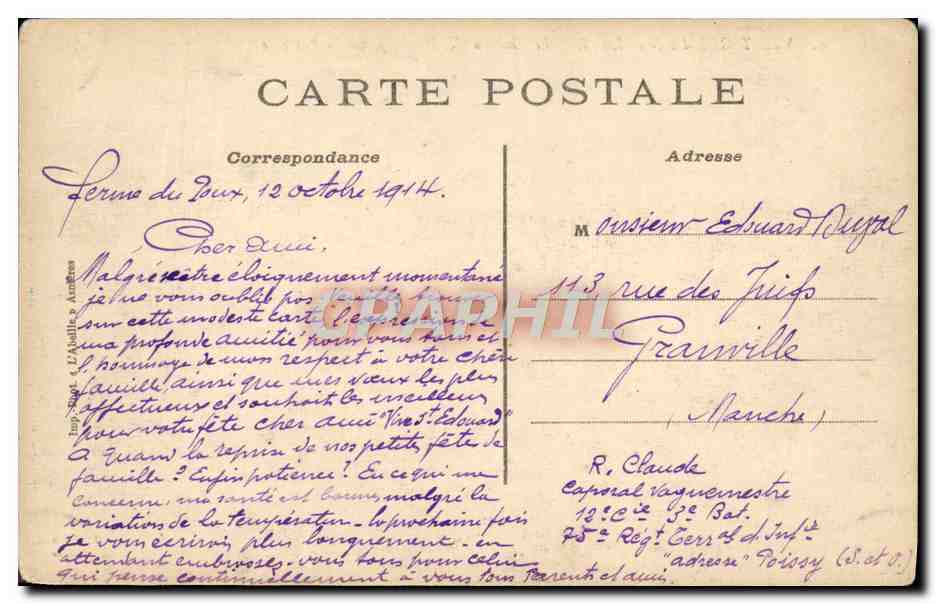 CARTE POSTALE
Correspondance
Adresse
ferme du Poux, 12 octobre 1914.
Cher ami,
Malgré être éloignement momentané
je ne vous oublie pas
sur cette modeste carte l'expression de
ma profonde amitié pour vous tous et
l'hommage de mon respect à votre chère
famille ainsi que mes vœux les plus
affectueux et souhait les meilleurs
pour votre fête cher ami "Vive St Edouard"
A quand la reprise de nos petites fête de
famille? Enfin patience! En ce qui me
concerne ma santé est bonne malgré la
variations de la température la prochaine fois
je vous écrirai plus longuement - en
attendant embrassez-vous tous pour celui
qui pense continuellement à vous tous Parents et amis.
Monsieur Edouard Duval
113 rue des Juifs
Granville
(Manche)
R. Claude
Caporal Vaguemestre
12e Cie 3e Bat.
75e Régt Terral d'Inf ie
"adresse" Poissy (S. et O.)
Imp. Phot. "L'Abeille" Asnières
CPAPHIL